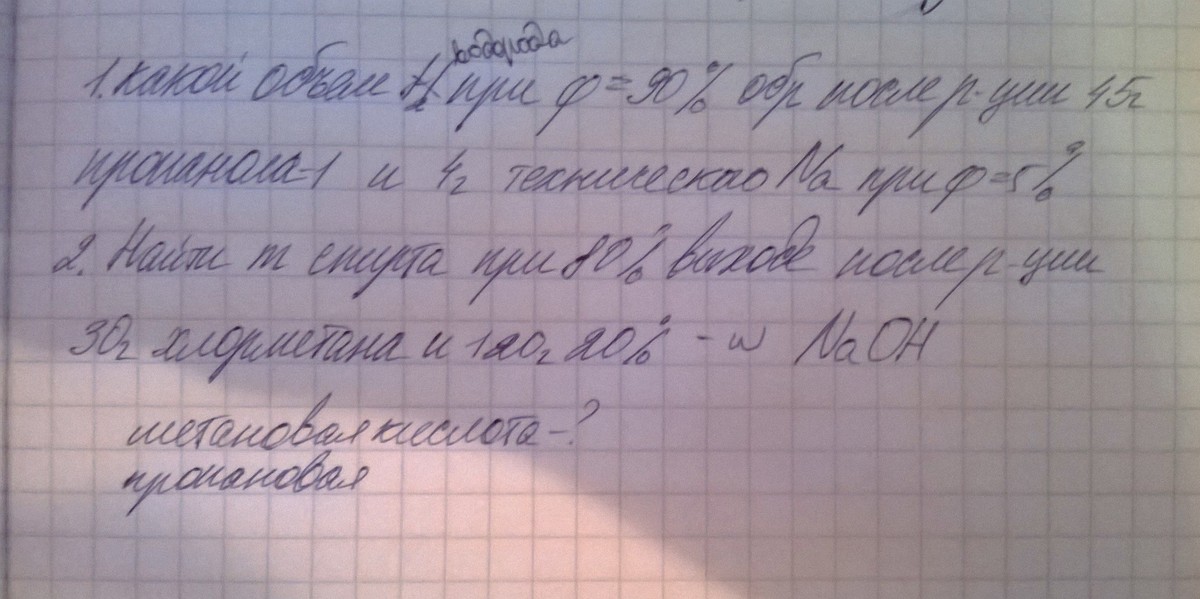 водорода
1. Какой объем H2 при φ=90% обр после р-ции 45г
пропанола-1 и 4г технического Na при φ=5%
2. Найти m спирта при 80% выходе после р-ции
30г хлорметана и 120г 20% - w NaOH
метановая кислота-?
пропановая